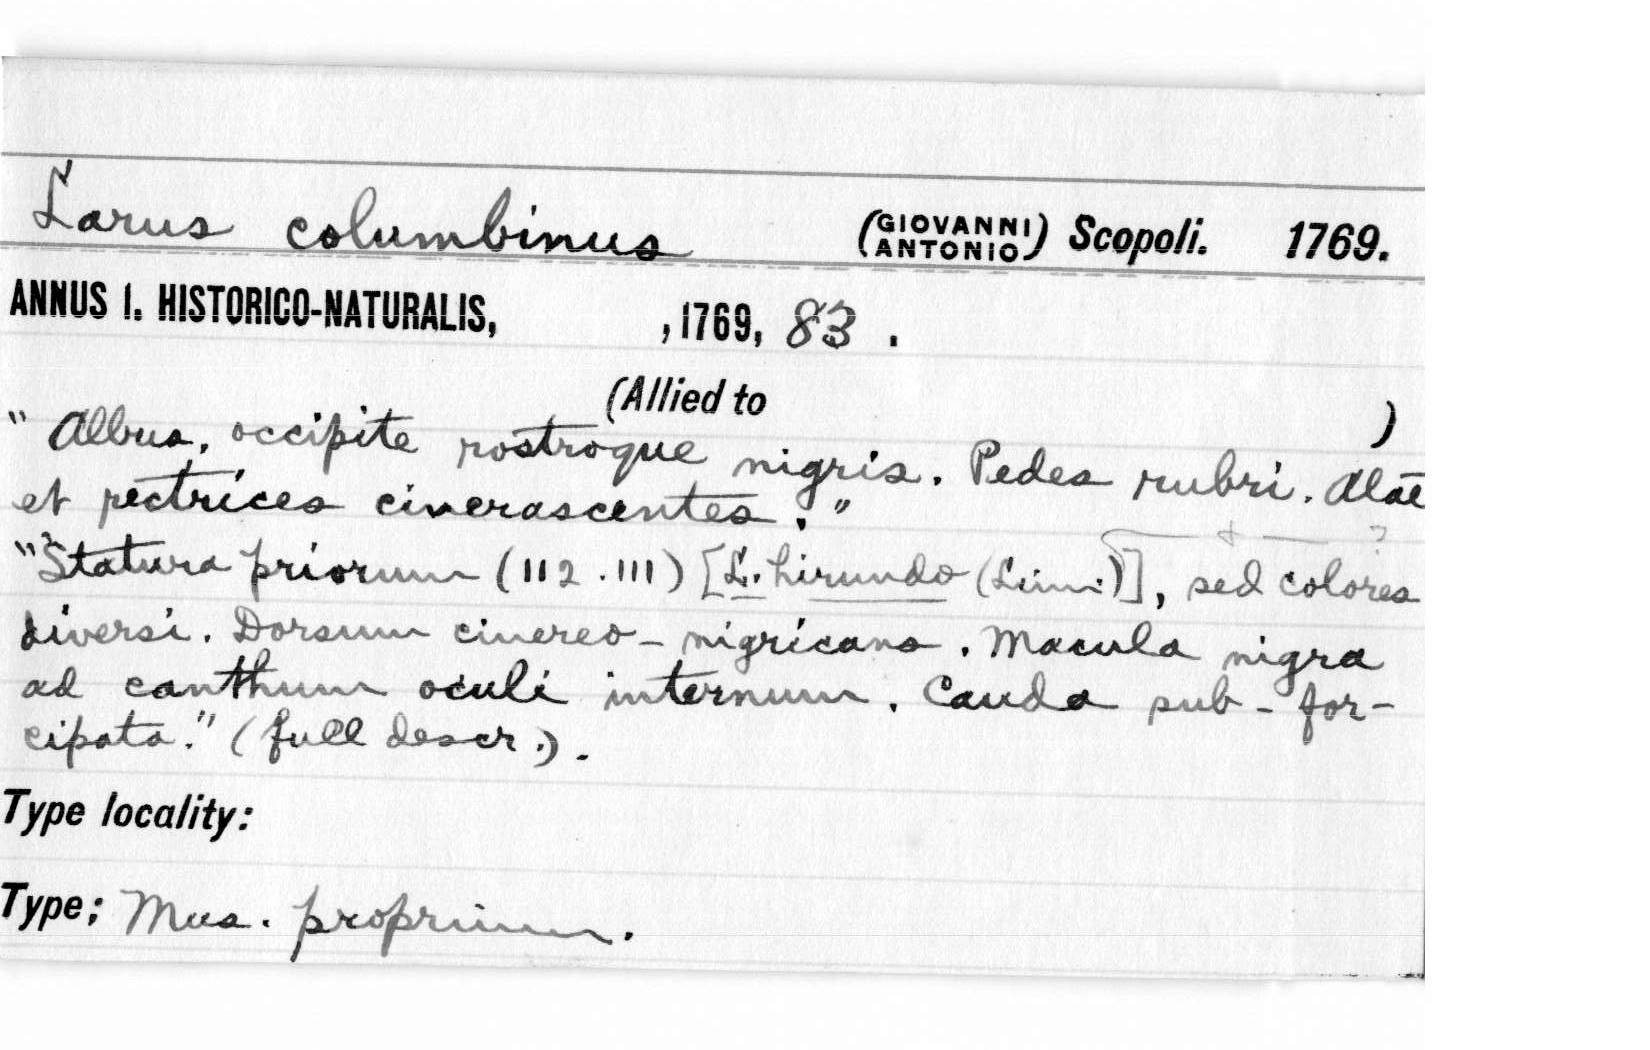 Larus columbinus (GIOVANNI ANTONIO) Scopoli. 1769.
ANNUS I. HISTORICO-NATURALIS, , 1769, 83 .
(Allied to )
" Albus, occipite rostroque nigris. Pedes rubri. Alae
et rectrices cinerascentes."
"Statura priorum (112.111) [L. hirundo (Linn.)], sed colores
diversi. Dorsum cinereo-nigricans. Macula nigra
ad canthum oculi internum. Cauda sub-for-
cipata." (full descr.).
Type locality:
Type; Mus. proprium.